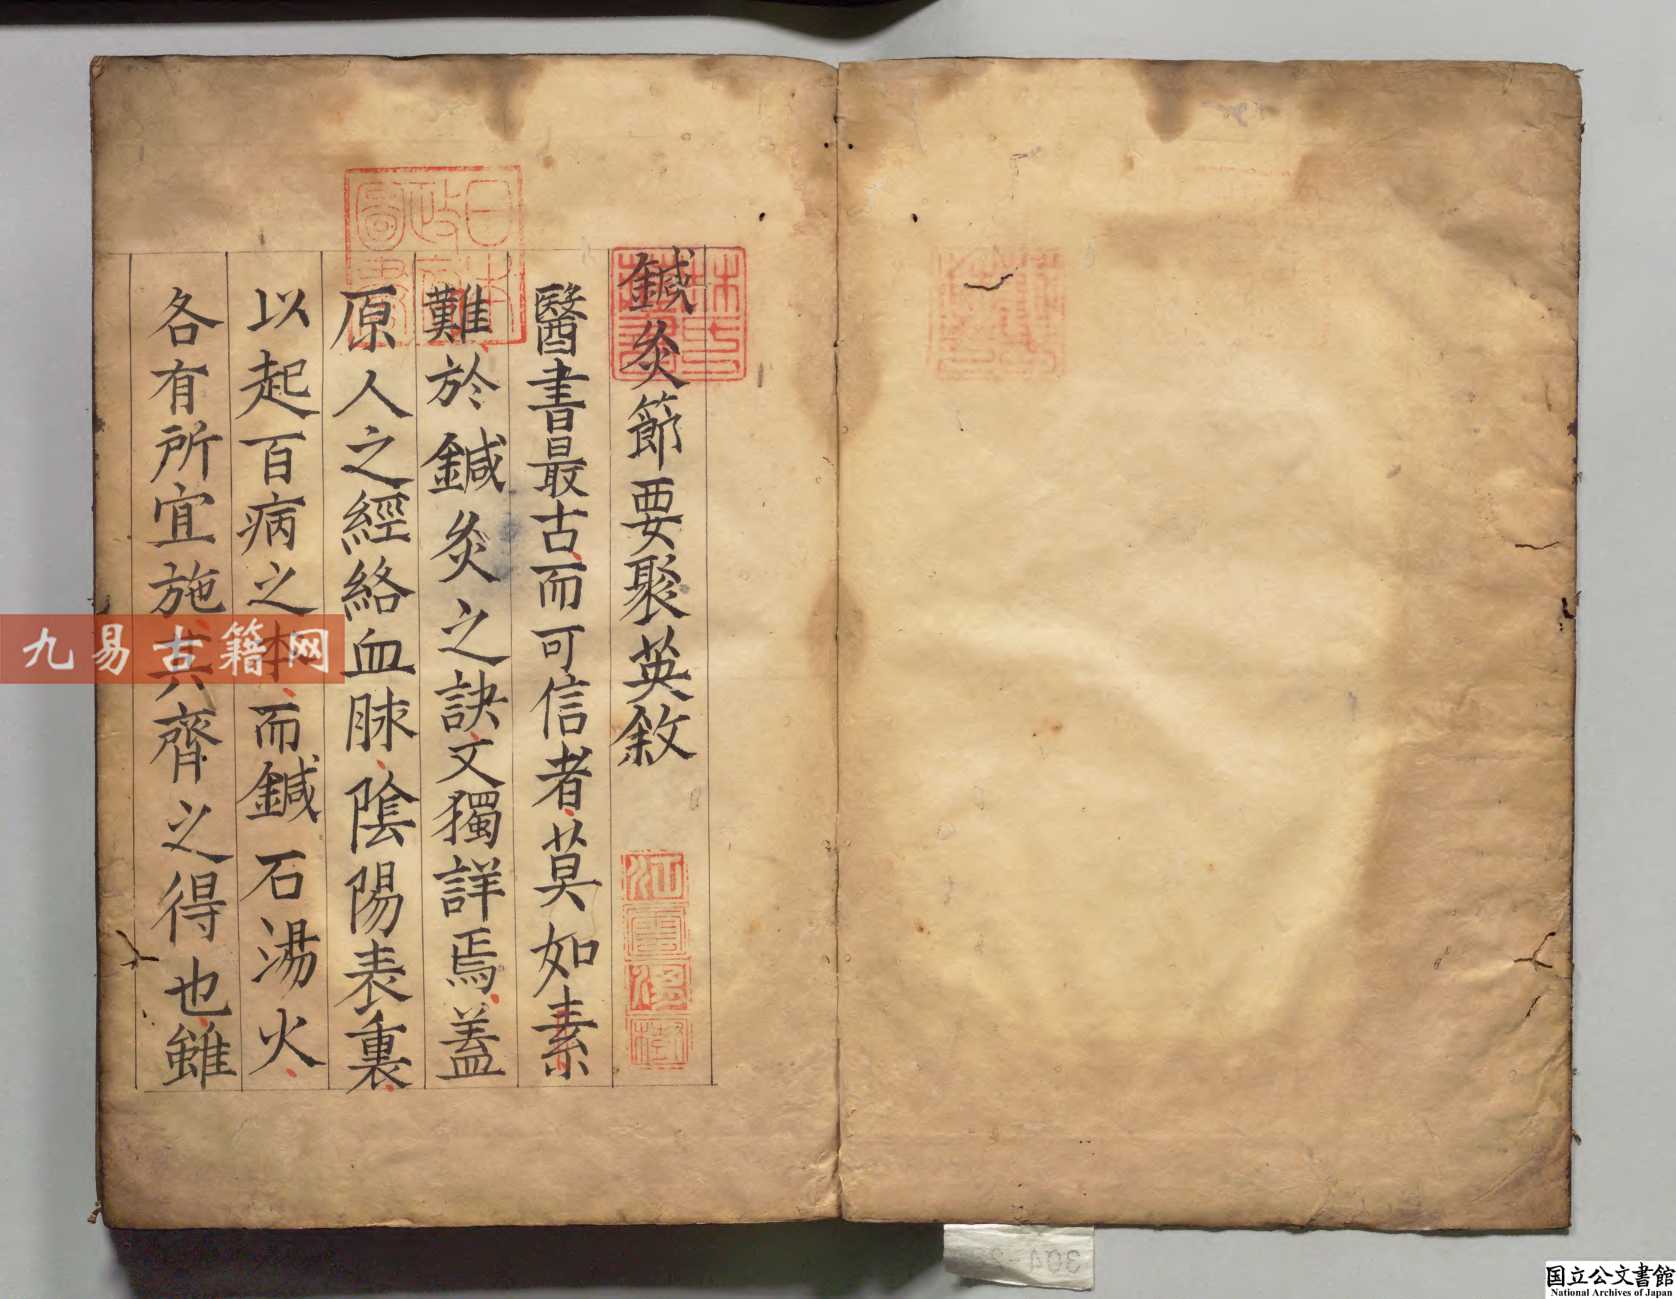 鍼灸節要聚英敘
醫書最古而可信者莫如素
難於鍼灸之訣文獨詳焉蓋
原人之經絡血脉陰陽表裏
以起百病之本而鍼石湯火
各有所宜施其齊之得也雖
日本政府圖書
林氏藏書
江雲渭樹
九易古籍网
国立公文書館
National Archives of Japan